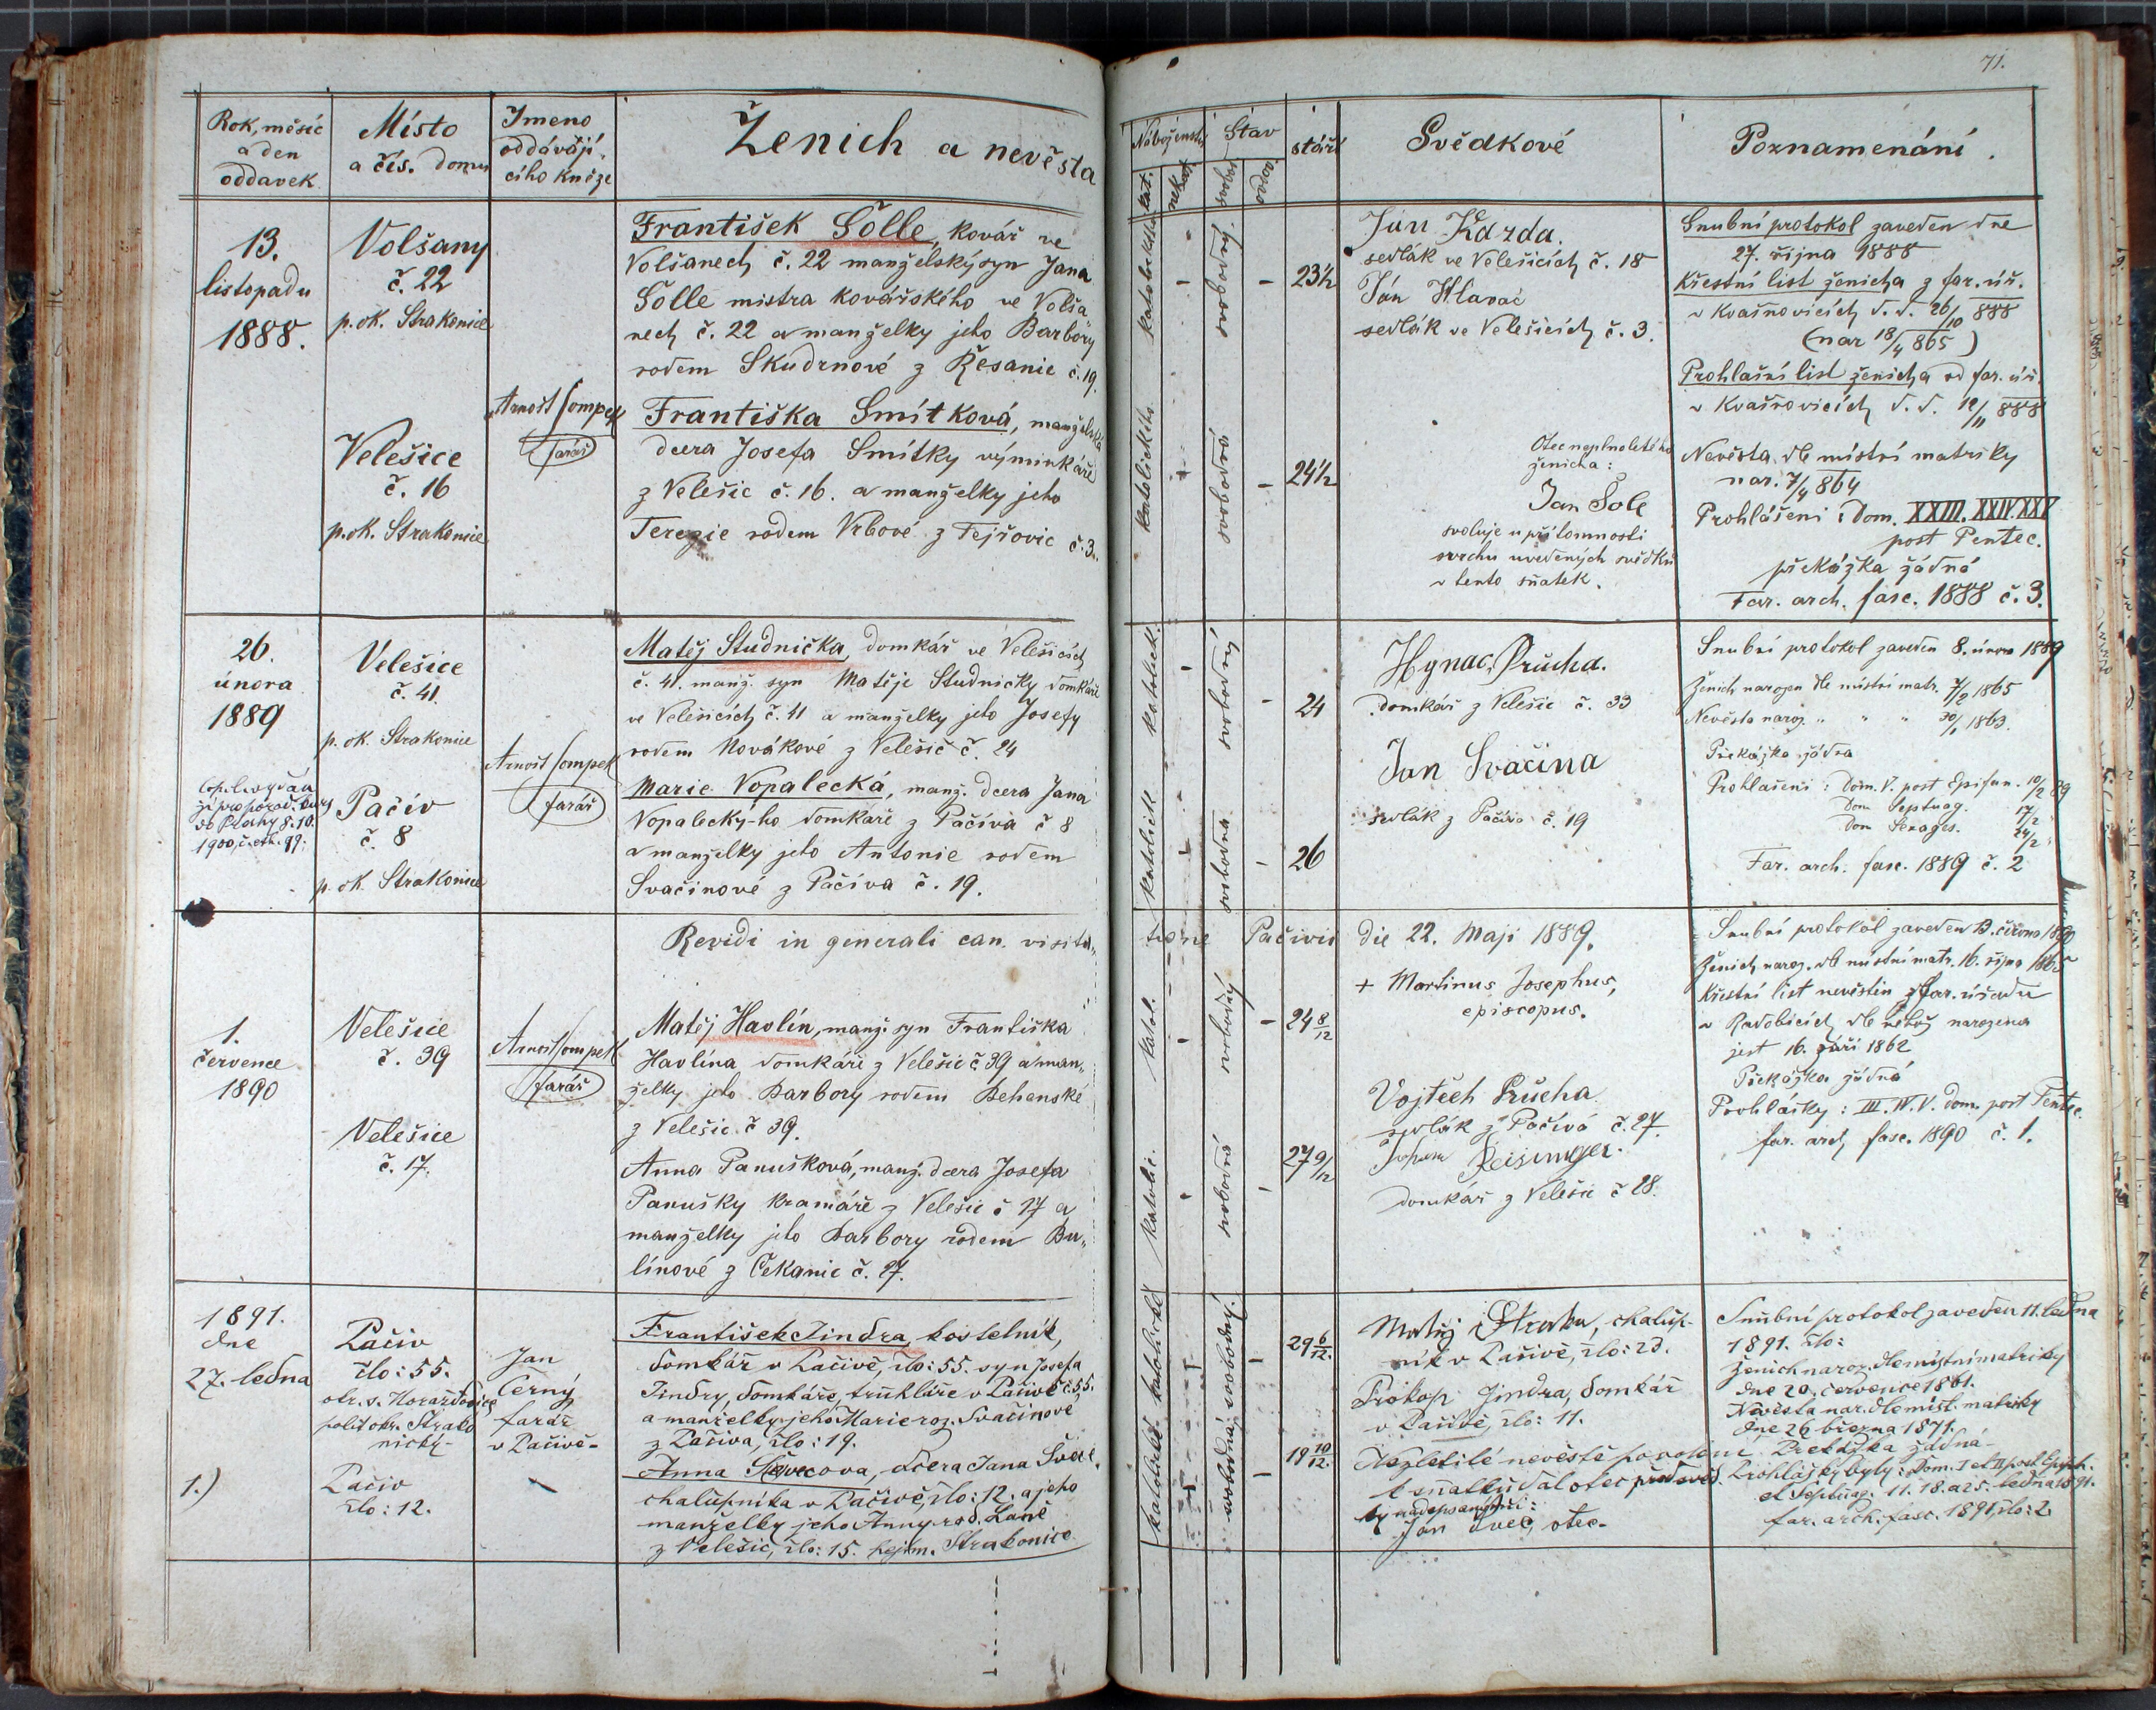 71.
Rok, měsíc
a den
oddavek
Místo
a čís. domu
Jmeno
oddávají-
cího kněze
Ženich a nevěsta
Náboženství
kat.
nekat.
Stav
svobod.
vdov.
stáří
Svědkové
Poznamenání.
13.
listopadu
1888.
Volšany
č. 22
p. ok. Strakonice
Velešice
č. 16
p. ok. Strakonice
Arnošt Sompek
farář
František Šolle, kovář ve
Volšanech č. 22 manželský syn Jana
Šolle mistra kovářského ve Volša
nech č. 22 a manželky jeho Barbory
rodem Skudrnové z Řesanic č. 19.
Františka Smítková, manželská
dcera Josefa Smítky výminkáře
z Velešic č. 16. a manželky jeho
Terezie rodem Vrbové z Fejřovic č. 3.
katolické
katolického
svobodný
svobodná
23½
24½
Jan Kazda.
sedlák ve Velešicích č. 18
Ján Hlaváč
sedlák ve Velešicích č. 3.
Otec neplnoletého
ženicha:
Jan Šole
svoluje u přítomnosti
svrchu uvedených svědků
v tento sňatek.
Snubní protokol zaveden dne
27. října 1888
Křestní list ženicha z far. úř.
v Kvášňovicích d. d. 26/10 888
(nar 18/4 865)
Prohlašní list ženicha od far. úř.
v Kvášňovicích d. d. 12/11 888
Nevěsta dle místní matriky
nar. 7/4 864
Prohlášení: Dom. XXIII. XXIV. XXV
post Pentec.
překážka žádná
Far. arch. fasc. 1888 č. 3.
26.
února
1889
Velešice
č. 41.
p. ok. Strakonice
Pačív
č. 8
p. ok. Strakonice
1900
Arnošt Sompek
farář
Matěj Studnička, domkář ve Velešicích
č. 41. manž. syn Matěje Studničky domkáře
ve Velešicích č. 41 a manželky jeho Josefy
rodem Novákové z Velešic č. 24
Marie Vopalecká, manž. dcera Jana
Vopalecký-ho domkáře z Pačíva č 8
a manželky jeho Antonie rodem
Svačinové z Pačíva č. 19.
katolick.
katolick
svobodný
svobodna
24
26
Hynac, Průcha.
domkář z Velešic č. 33
Jan Svačina
sedlák z Pačíva č. 19
Snubní protokol zaveden 8. února 1889
Ženich narozen dle místní matr. 7/2 1865
Nevěsta naroz. " " " 30/1 1863.
Překážka žádná
Prohlašení: Dom. V. post Epifan. 10/2 89
Dom Septuag. 17/2
Dom Sexages. 24/2
Far. arch. fasc. 1889 č. 2
Revidi in generali can. visita-
tione Pačivii die 22. Maji 1889.
+ Martinus Josephus,
episcopus.
1.
července
1890
Velešice
č. 39
Velešice
č. 17.
Arnošt Sompek
farář
Matěj Havlín, manž. syn Františka
Havlína domkáře z Velešic č 39 a man-
želky jeho Barbory rodem Behenské
z Velešic č 39.
Anna Panušková, manž. dcera Josefa
Panušky kramáře z Velešic č 17 a
manželky jeho Barbory rodem Bu-
línové z Čekanic č. 27.
katol.
katolic.
svobodný
svobodná
24 8/12
27 9/12
Vojtěch Průcha
sedlák z Pačívá č. 27.
Reisinger.
domkář z Velešic č 28.
Snubní protokol zaveden 13. června 1890
Ženich naroz. dle místní matr. 16. října 1865
Křestní list nevěstin z far. úřadu
v Radobicích dle něhož narozena
jest 16. září 1862
Překážka žádná
Prohlášky: III. IV. V. dom. post Pentec.
far. arch. fasc. 1890 č. 1.
1891.
dne
27. ledna
1.)
Pačiv
člo: 55.
okr. s. Horažďovice
polit okr. Strako
nický-
Pačiv
člo: 12.
Jan
Černý
farář
v Pačivě-
František Jindra, kostelník,
domkář v Pačivě, člo: 55. syn Josefa
Jindry, domkáře, truhláře v Pačivě č. 55.
a manželky jeho Marie roz. Svačinové
z Pačiva, člo: 19.
Anna Ševcova, dcera Jana Ševce,
chalupníka v Pačivě, člo: 12. a jeho
manželky jeho Anny rod. Laně
z Velešic, člo: 15. hejtm. Strakonice
katolické
katolické
svobodný.
svobodná
29 6/12.
19 10/12.
Matěj Straka, chalup-
ník v Pačivě, člo: 23.
Prokop Jindra, domkář
v Pačivě, člo: 11.
Nezletilé nevěstě povolení
k sňatku dal otec před svěd.
ky nadepsanými:
Ján Švec, otec-
Snubní protokol zaveden 11. ledna
1891. člo:
Ženich naroz. dle místní matriky
dne 20. července 1861.
Nevěsta nar. dle míst. matriky
dne 26 března 1871.
Překážka žádná
Prohlášky byly: Dom. I et II post Epiph.
et Septuag. 11. 18. a 25. ledna 1891.
far. arch. fasc. 1891, člo: 2.